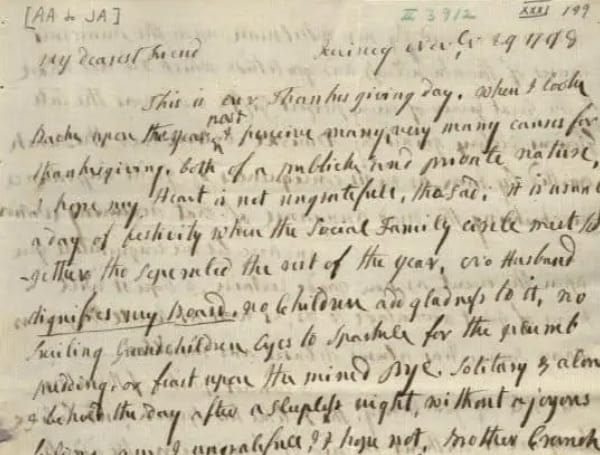 [AA to JA] II 3912 XXXI 199
My dearest Friend Quincy Novbr 29 1798
This is our Thanksgiving day. when I looke
Back upon the year past & perceive many, very many causes for
thanksgiving, both of a publick and private nature,
I hope my Heart is not ungratefull, tho sad; it is usually
a day of festivity when the Social Family circle meet to
-gether tho seperated the rest of the year, No Husband
dignifies my Board, no Children add gladness to it, no
Smiling Grandchildren Eyes to Sparkle for the plumb
pudding, or feast upon the mincd Pye. Solitary & alone
I behold the day after a sleepless night, without a joyous
feeling. am I ungratefull? I hope not. Brother Cranch